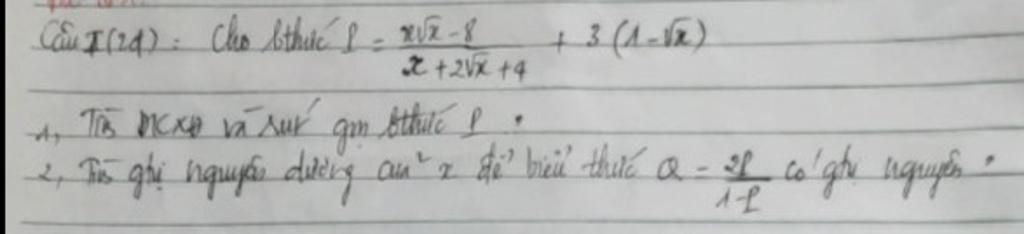 Câu I (2đ): Cho bthức P = x√x - 8 / x + 2√x + 4 + 3 (1 - √x)
1, Tìm ĐKXĐ và rút gọn bthức P.
2, Tìm gtrị nguyên dương của x để biểu thức Q = 2P / 1-P có gtrị nguyên.